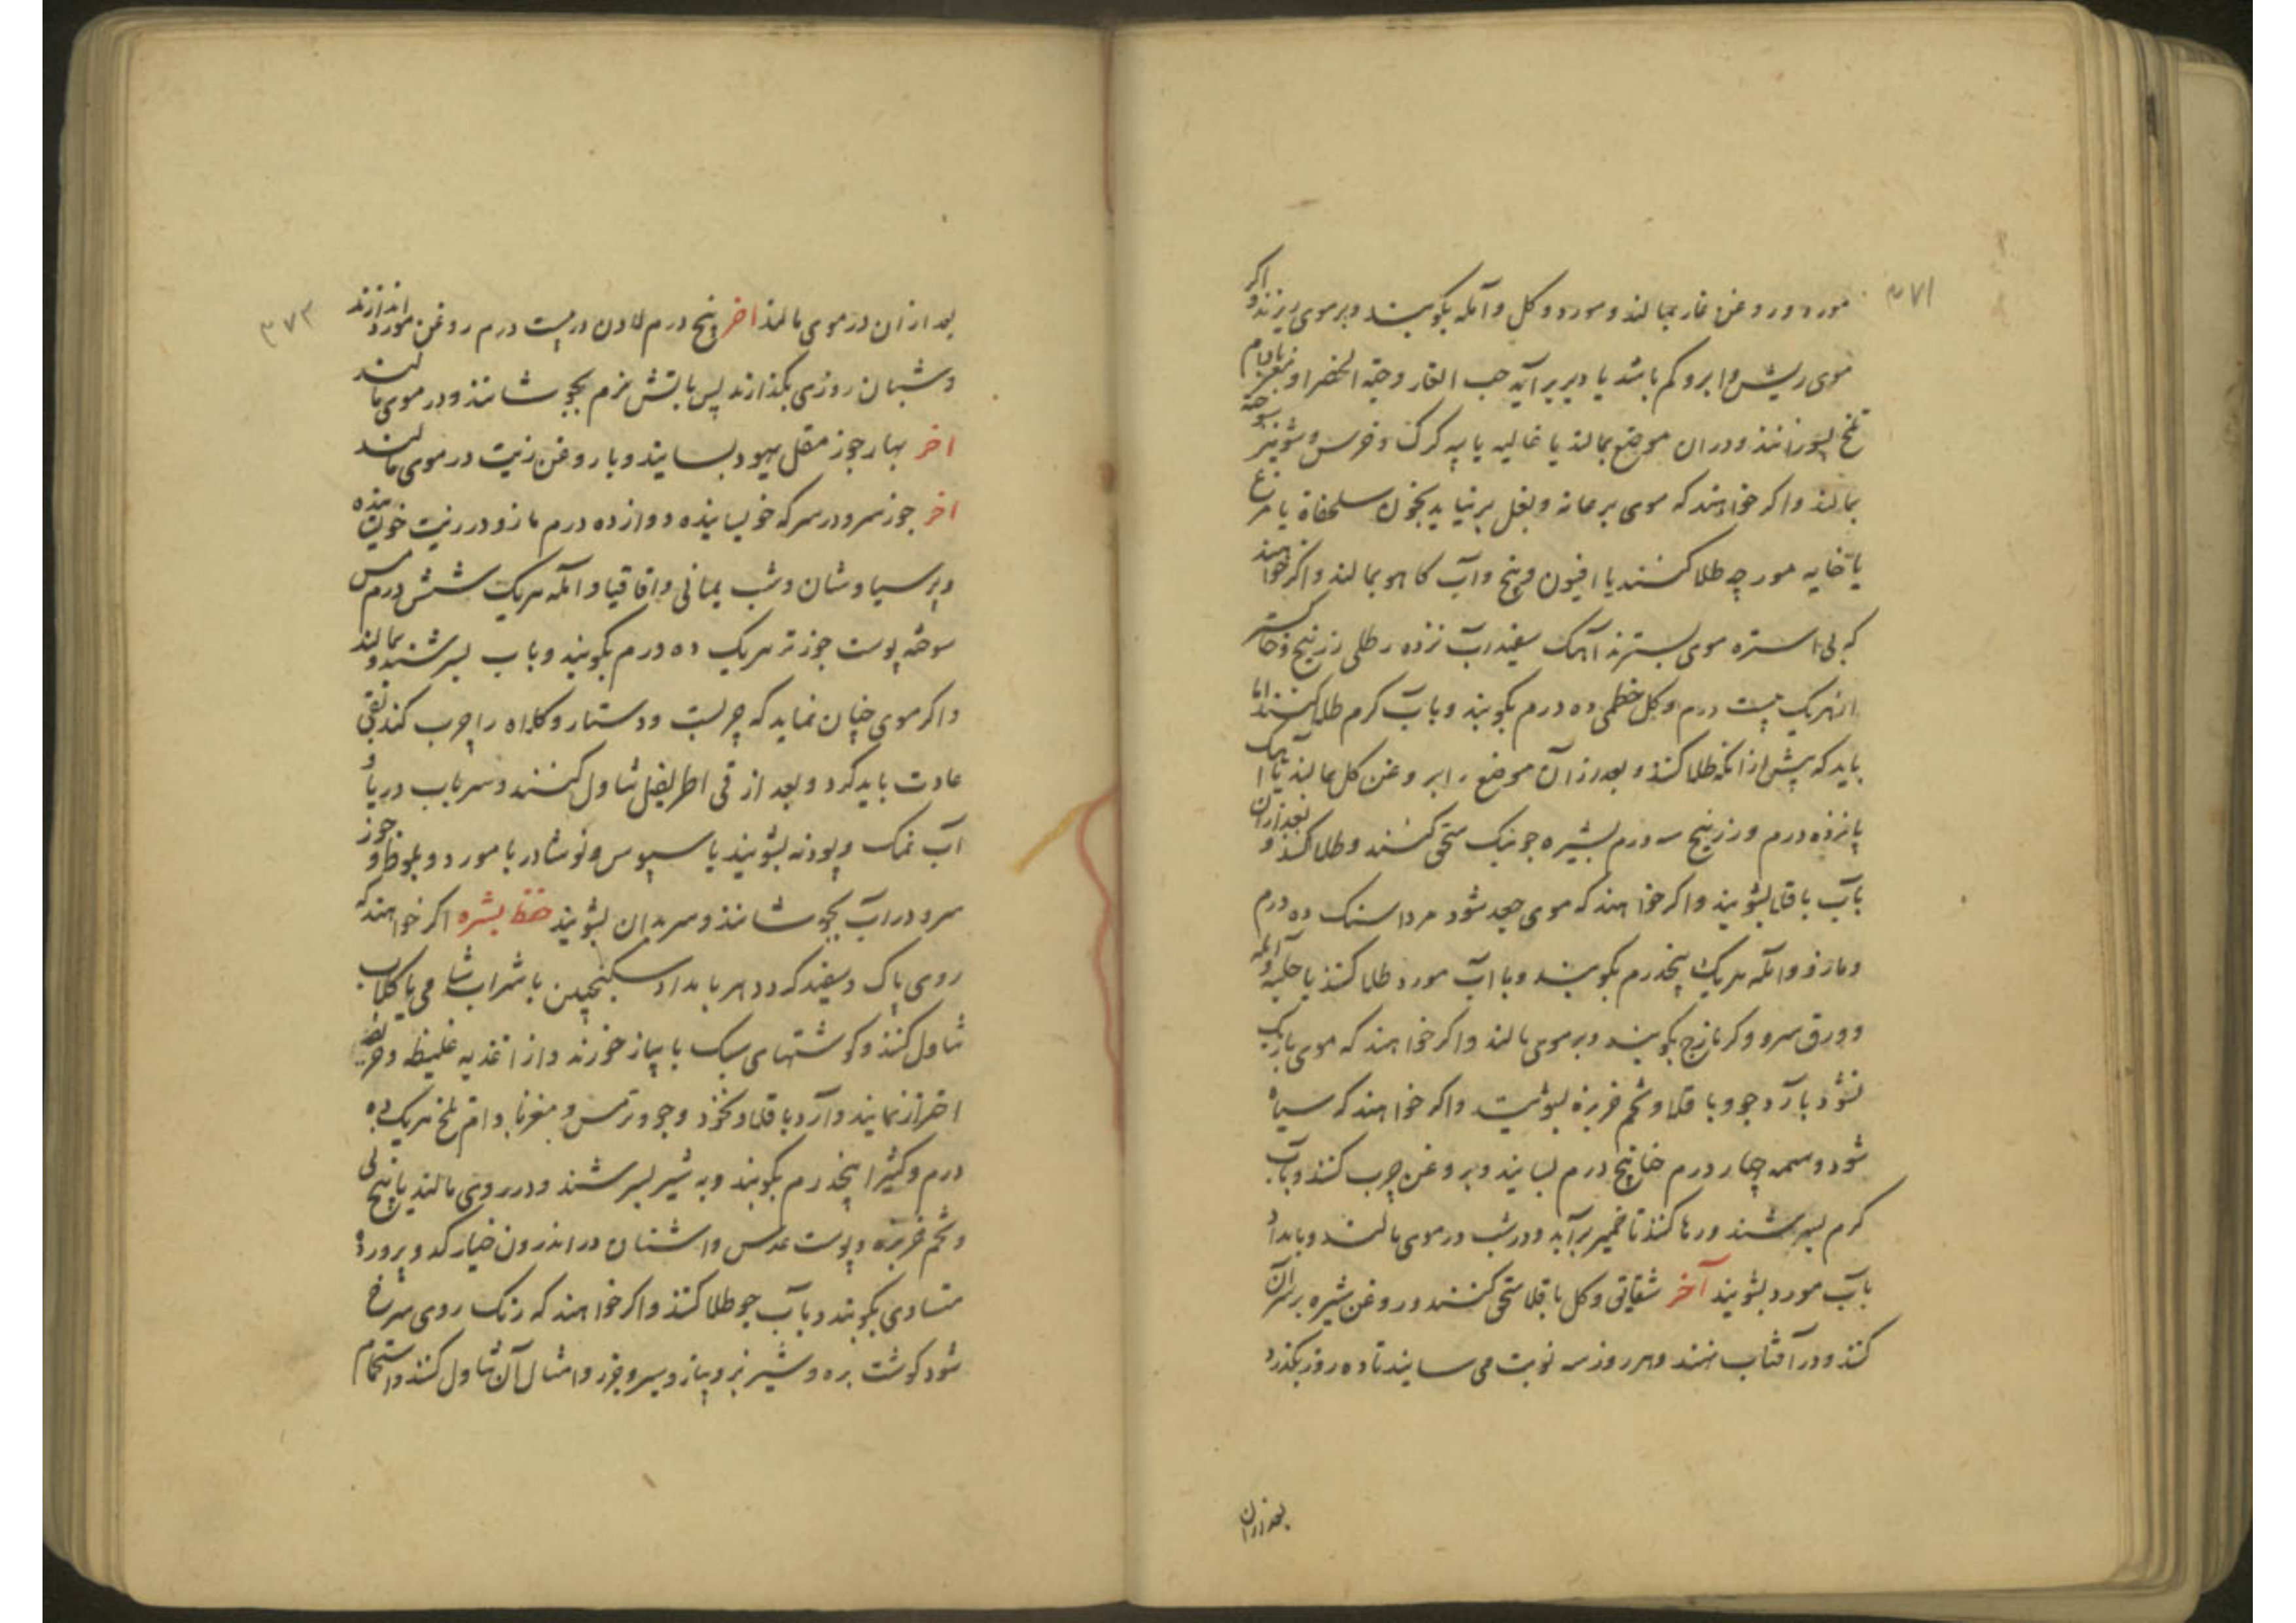 ۳۷۱
مورد و روغن غار بمالند و مورد و گل و آمله بکوبند و بر موی ریزند و اگر
موی ریش و ابرو کم باشد یا دیر برآید حب الغار و حبة الخضرا و مغز بادام
تلخ بسوزانند و در آن موضع بمالند یا غالیه یا پیه گرگ و خرس و شونیز سوخته
بمالند و اگر خواهند که موی بر عانه و بغل بر نیاید بخون سلحفاة یا
یا خایه مورچه طلا کنند یا افیون و بنج و آب کاهو بمالند و اگر خواهند
که بی استره موی بسترند آهک سفید آب نزده رطلی زرنیخ و خاکستر
از هر یک بیست درم و گل خطمی ده درم بکوبند و بآب گرم طلا کنند اما
باید که پیش از آنکه طلا کنند و بعد از آن موضع را بروغن گل بمالند یا آهک
پانزده درم و زرنیخ سه درم بشیره جو نیک سحق کنند و طلا کنند و بعد از آن
بآب باقلا بشویند و اگر خواهند که موی جعد شود مرداسنگ ده درم
و مازو و آمله هر یک پنجدرم بکوبند و با آب مورد طلا کنند یا حلبه و آمله
و ورق سرو و کزمازج بکوبند و بر موی مالند و اگر خواهند که موی باریک
شود بآرد جو و باقلا و تخم خربزه بشویند و اگر خواهند که سیاه
شود وسمه چهار درم حنا پنج درم بسایند و بروغن چرب کنند و بآب
گرم بسرشند و رها کنند تا خمیر برآید و در شب در موی مالند و بامداد
بآب مورد بشویند آخر شقایق و گل باقلا سحق کنند و روغن شیره بر سر آن
کنند و در آفتاب نهند و هر روز سه نوبت می سایند تا ده روز بگذرد
بعد از آن
۳۷۲
بعد از آن در موی مالند اخر پنج درم لادن در بیست درم روغن مورد اندازند
و شبان روزی بگذارند پس بآتش نرم بجوشانند و در موی مالند
اخر بهار جوز مقل یهود بسایند و با روغن زیت در موی مالند
اخر جوز سرو در سرکه خویسانیده دوازده درم مازو در زیت خویسانیده
و پر سیاوشان و شب یمانی و اقاقیا و آمله هر یک شش درم مس
سوخته پوست جوز تر هر یک ده درم بکوبند و بآب بسرشند و بمالند
و اگر موی چنان نماید که چربست و دستار و کلاه را چرب کند بقی
عادت باید کرد و بعد از قی اطریفل تناول کنند و سر بآب دریا و
آب نمک و پودنه بشویند یا سپوس و نوشادر یا مورد و بلوط و جوز
سرو در آب بجوشانند و سر بدان بشویند حفظ بشره اگر خواهند که
روی پاک و سفید گردد هر بامداد سکنجبین با شراب شامی یا گلاب
تناول کنند و گوشتهای سبک با پیاز خورند و از اغذیه غلیظه و
احتراز نمایند و آرد باقلا و نخود و جو و ترمس و مغز بادام تلخ هر یک ده
درم و کثیرا پنجدرم بکوبند و به شیر بسرشند و در روی مالند یا بیخ نی
و تخم خربزه و پوست عدس و اشنان در اندرون خیار
متساوی بکوبند و بآب جو طلا کنند و اگر خواهند که رنگ روی سرخ
شود گوشت بره و شیر نبز و پیاز و سیر و جزر و امثال آن تناول کنند و استحمام